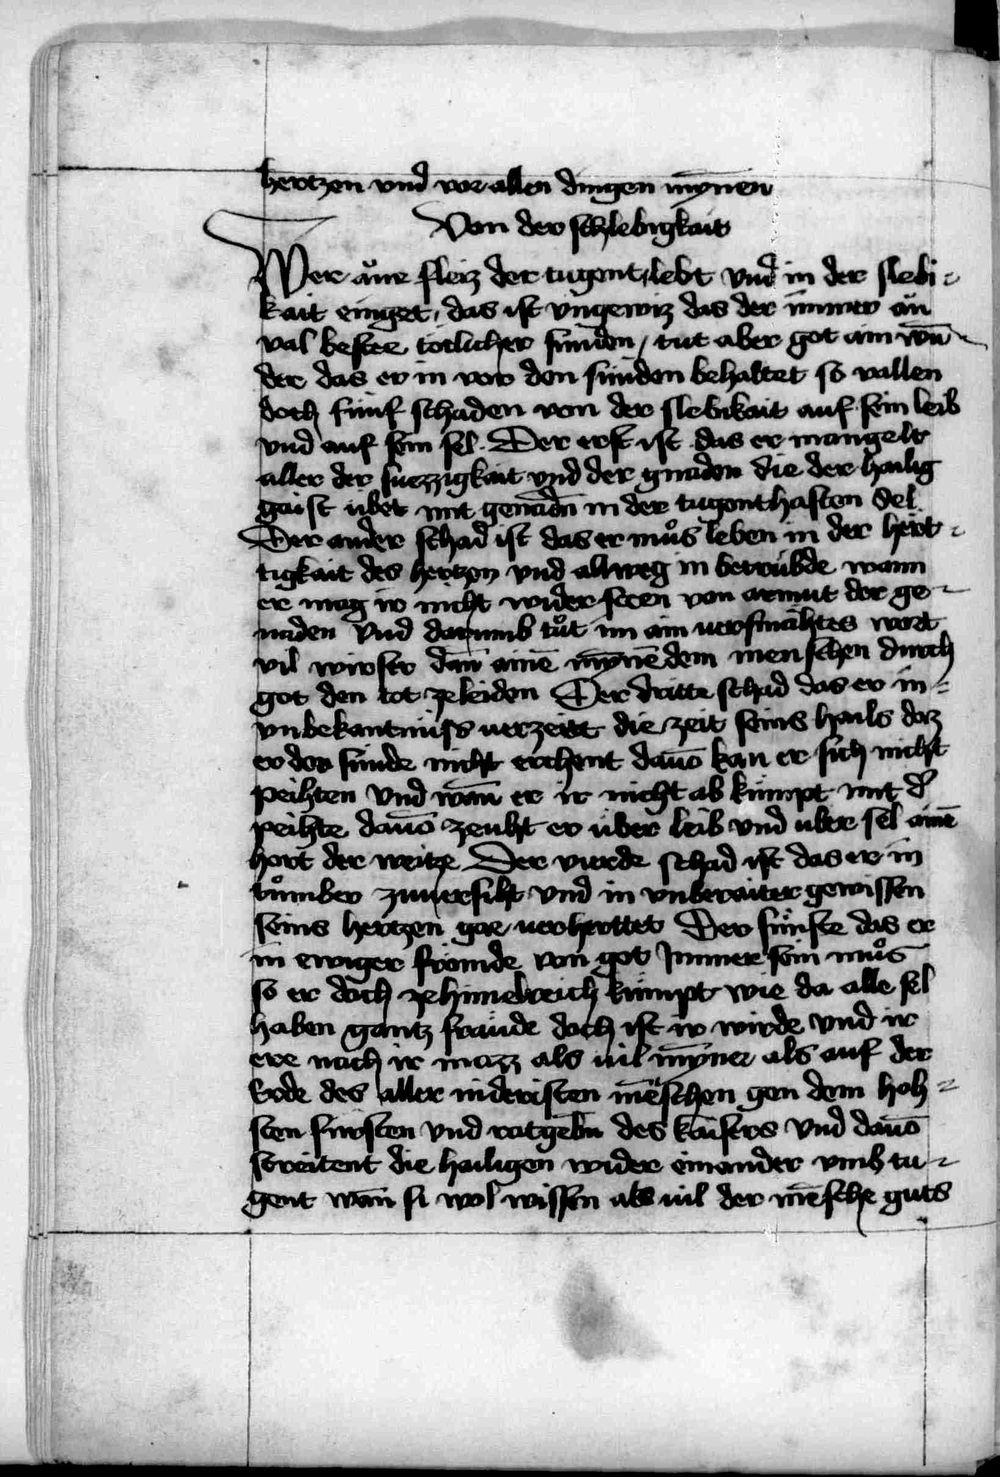 hertzen vnd vor allen dingen mỹnen
Von der schlebigkait
Wer aůne fleiz der tugent lebt vnd in der slebi-
kait einget, das ist vngewiz das der immer an
val beste totlicher sunden, tut aber got ain wū-
der das er in vor den sunden behaltet so vallen
doch funf schaden von der slebikait auf sein leib
vnd auf sein sel. Der erst ist das er mangelt
aller der suezzigkait vnd der gnaden die der hailig
gaist übet mit genadn in der tugenthaften Sel
Der ander schad ist das er můs leben in der hert-
tigkait des hertzen vnd allweg in betrubde wann
er mag ir nicht widersten von armut der ge-
naden vnd darumb tůt im ain uersmahtes wort
vil wirser dan̄ ainē mỹnēdem menschen durch
got den tot ze leiden Der dritte schad das er in-
vnbekantnüss uerzert die zeit seins hails daz
er der sünde nicht erchent dauō kan er sich nicht
peihten vnd wan̄ er ir nicht ab kumpt mit d'
peihte dauō zeuht er über leib vnd uber sel ainē
hort der weitze Der vierde schad ist das er in
tůmber zuuersiht vnd in vnberaiter gewissen
seins hertzen gar uerherttet Der fünfte das er
in ewiger frömde von got Immer sein můs
so er doch ze himelreich kumpt wie da alle sel
haben gantz fraüde doch ist ir wirde vnd ir
ere nach ir mazz als uil mỹner als auf der
Erde des aller inderisten mēschen gen dem hoh-
sten fürsten vnd ratgebn des kaisers vnd dauō
streitent die hailigen wider einander vmb tu-
gent wan̄ si wol wissen als uil der mēsche guts